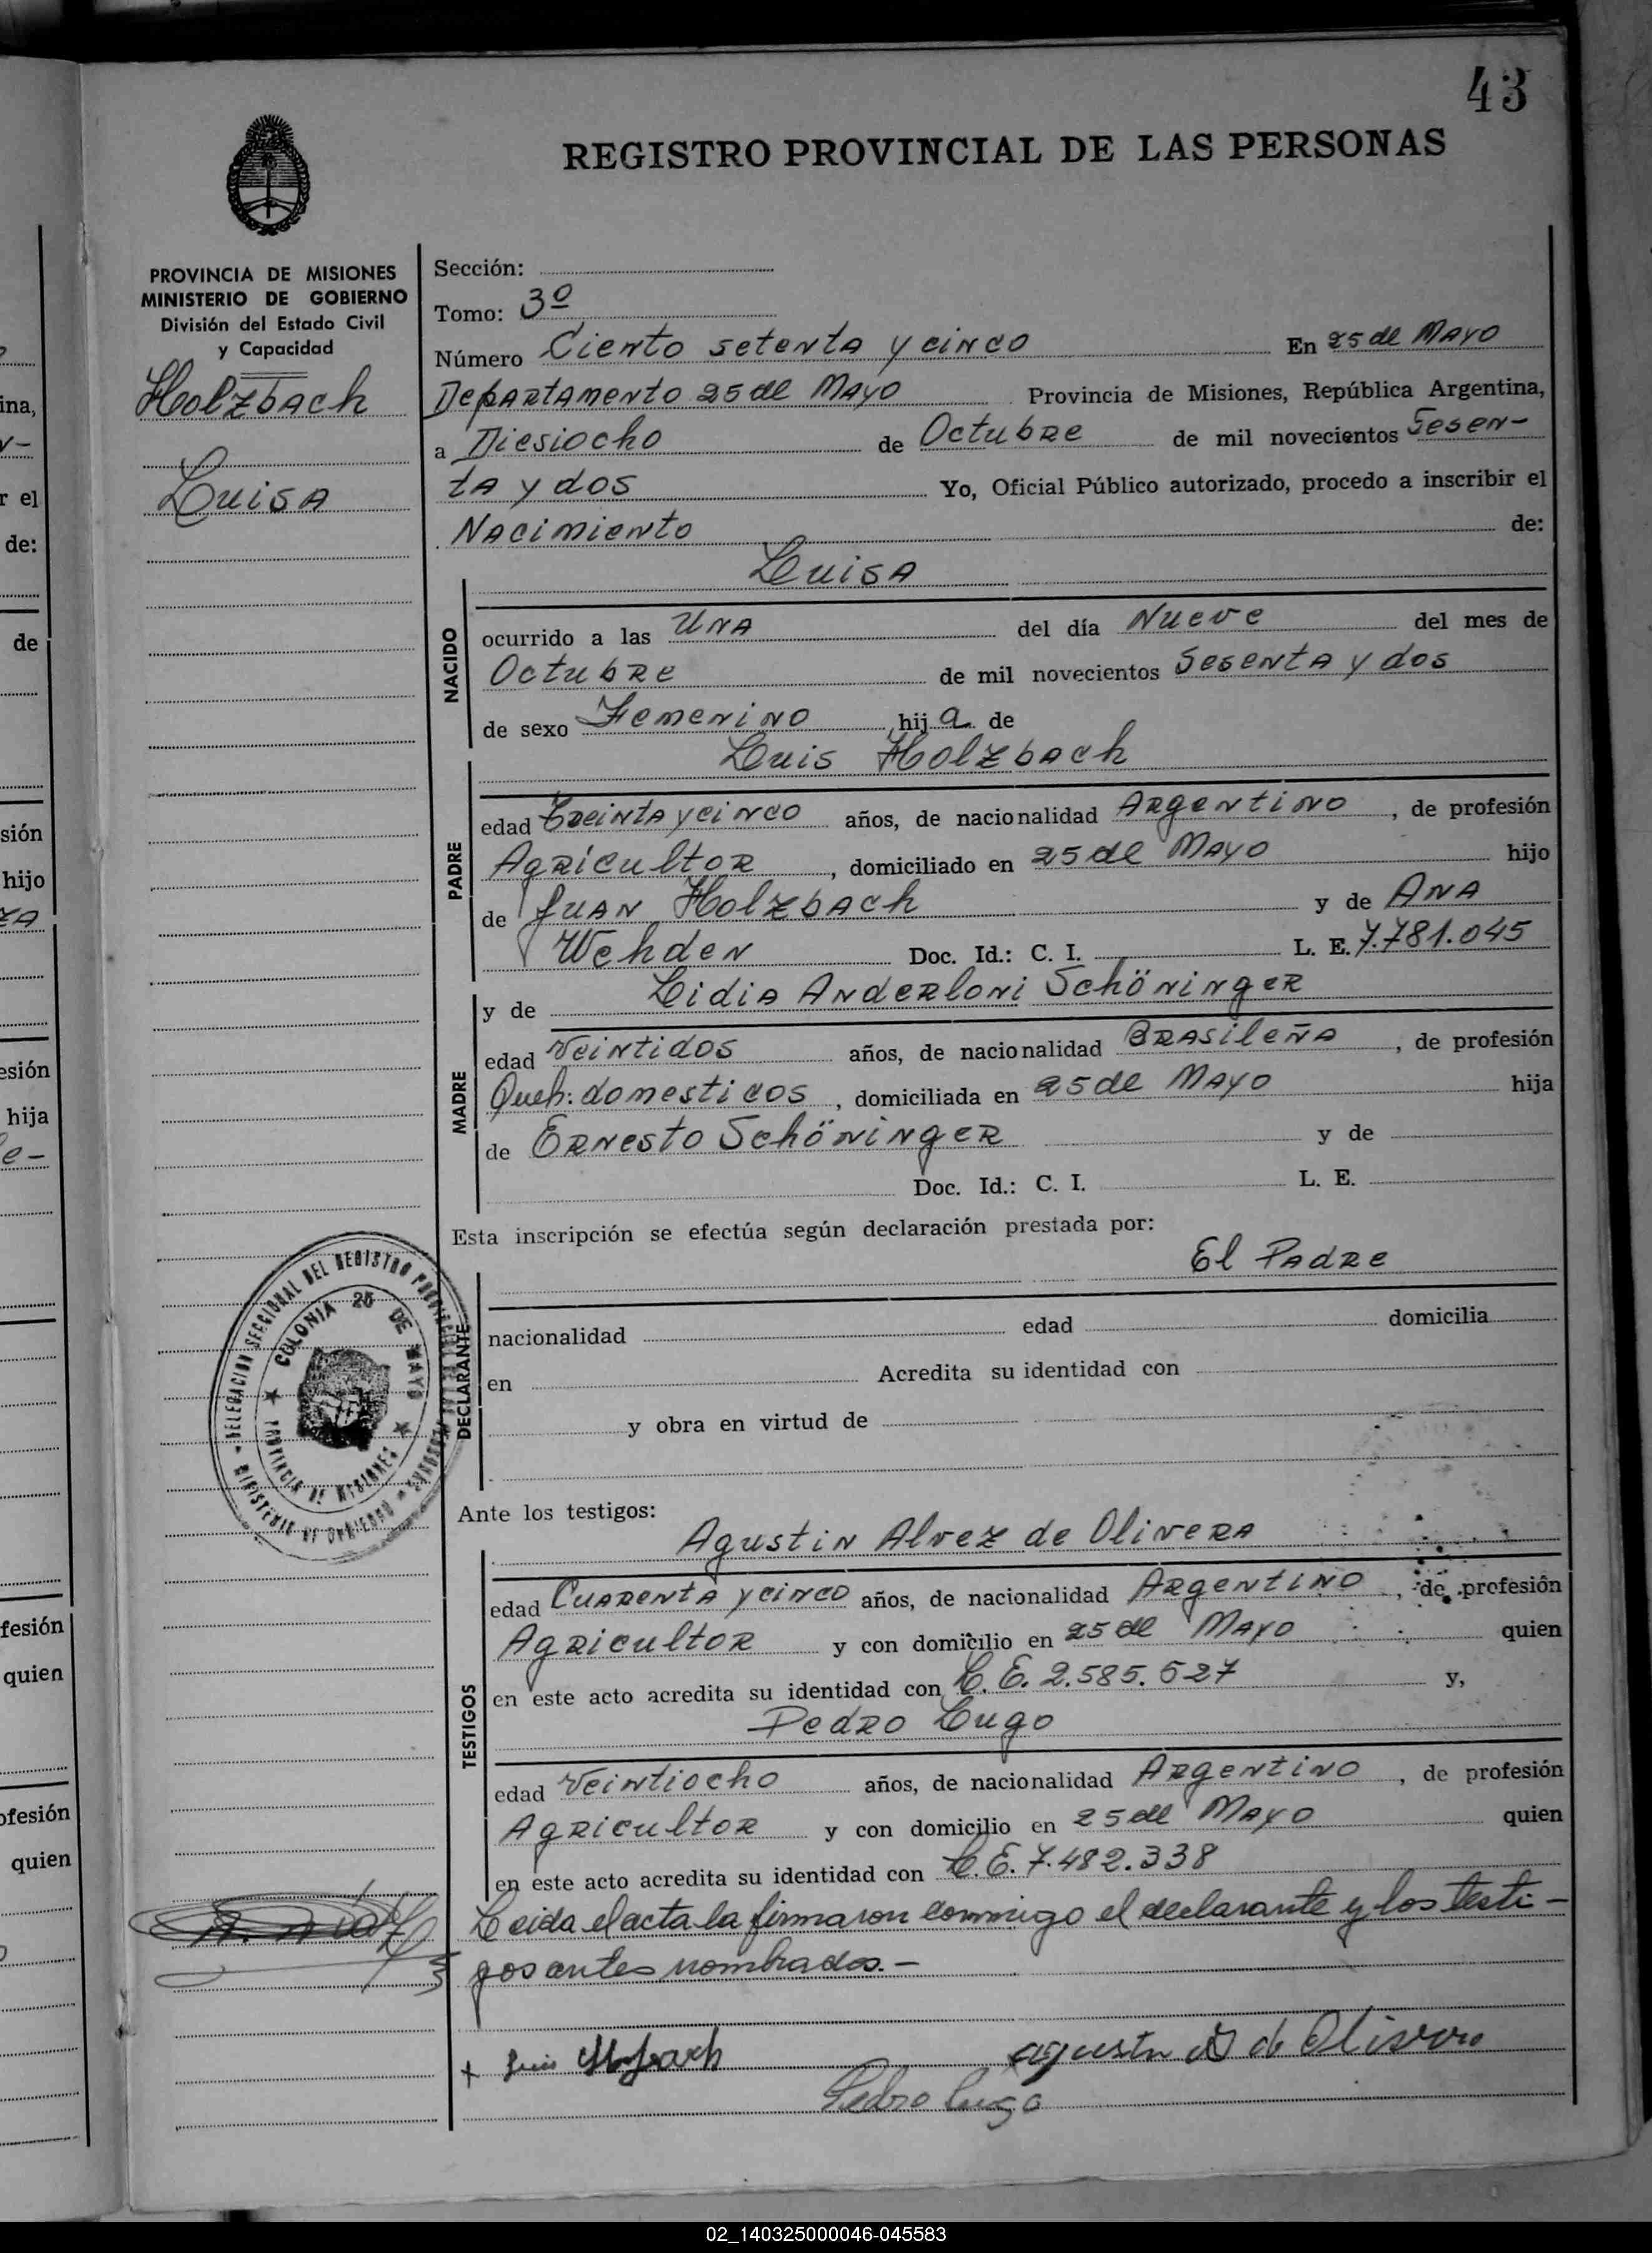 43
REGISTRO PROVINCIAL DE LAS PERSONAS
PROVINCIA DE MISIONES
MINISTERIO DE GOBIERNO
División del Estado Civil
y Capacidad
Holzbach
Luisa
Sección:
Tomo: 3º
Número Ciento setenta y cinco En 25 de Mayo
Departamento 25 de Mayo Provincia de Misiones, República Argentina,
a Diesiocho de Octubre de mil novecientos Sesen-
ta y dos Yo, Oficial Público autorizado, procedo a inscribir el
Nacimiento de:
Luisa
NACIDO
ocurrido a las Una del día Nueve del mes de
Octubre de mil novecientos Sesenta y dos
de sexo Femenino hija de
Luis Holzbach
PADRE
edad Treinta y cinco años, de nacionalidad Argentino, de profesión
Agricultor, domiciliado en 25 de Mayo hijo
de Juan Holzbach y de Ana
Wehden Doc. Id.: C. I. L. E. 7.781.045
y de Lidia Anderloni Schöninger
MADRE
edad Veintidos años, de nacionalidad Brasileña, de profesión
Queh: domesticos, domiciliada en 25 de Mayo hija
de Ernesto Schöninger y de
Doc. Id.: C. I. L. E.
Esta inscripción se efectúa según declaración prestada por:
El Padre
DECLARANTE
nacionalidad edad domicilia
en Acredita su identidad con
y obra en virtud de
DELEGACION SECCIONAL DEL REGISTRO
COLONIA 25 DE MAYO
PROVINCIA DE MISIONES
MINISTERIO DE GOBIERNO
Ante los testigos:
Agustin Alvez de Olivera
TESTIGOS
edad Cuarenta y cinco años, de nacionalidad Argentino, de profesión
Agricultor y con domicilio en 25 de Mayo quien
en este acto acredita su identidad con L.E. 2.585.527 y,
Pedro Lugo
edad Veintiocho años, de nacionalidad Argentino, de profesión
Agricultor y con domicilio en 25 de Mayo quien
en este acto acredita su identidad con L.E. 7.482.338
Leida el acta la firmaron conmigo el declarante y los testi-
gos antes nombrados.-
+ Luis Holzbach
agustin A de Olivera
Pedro Lugo
02_140325000046-045583